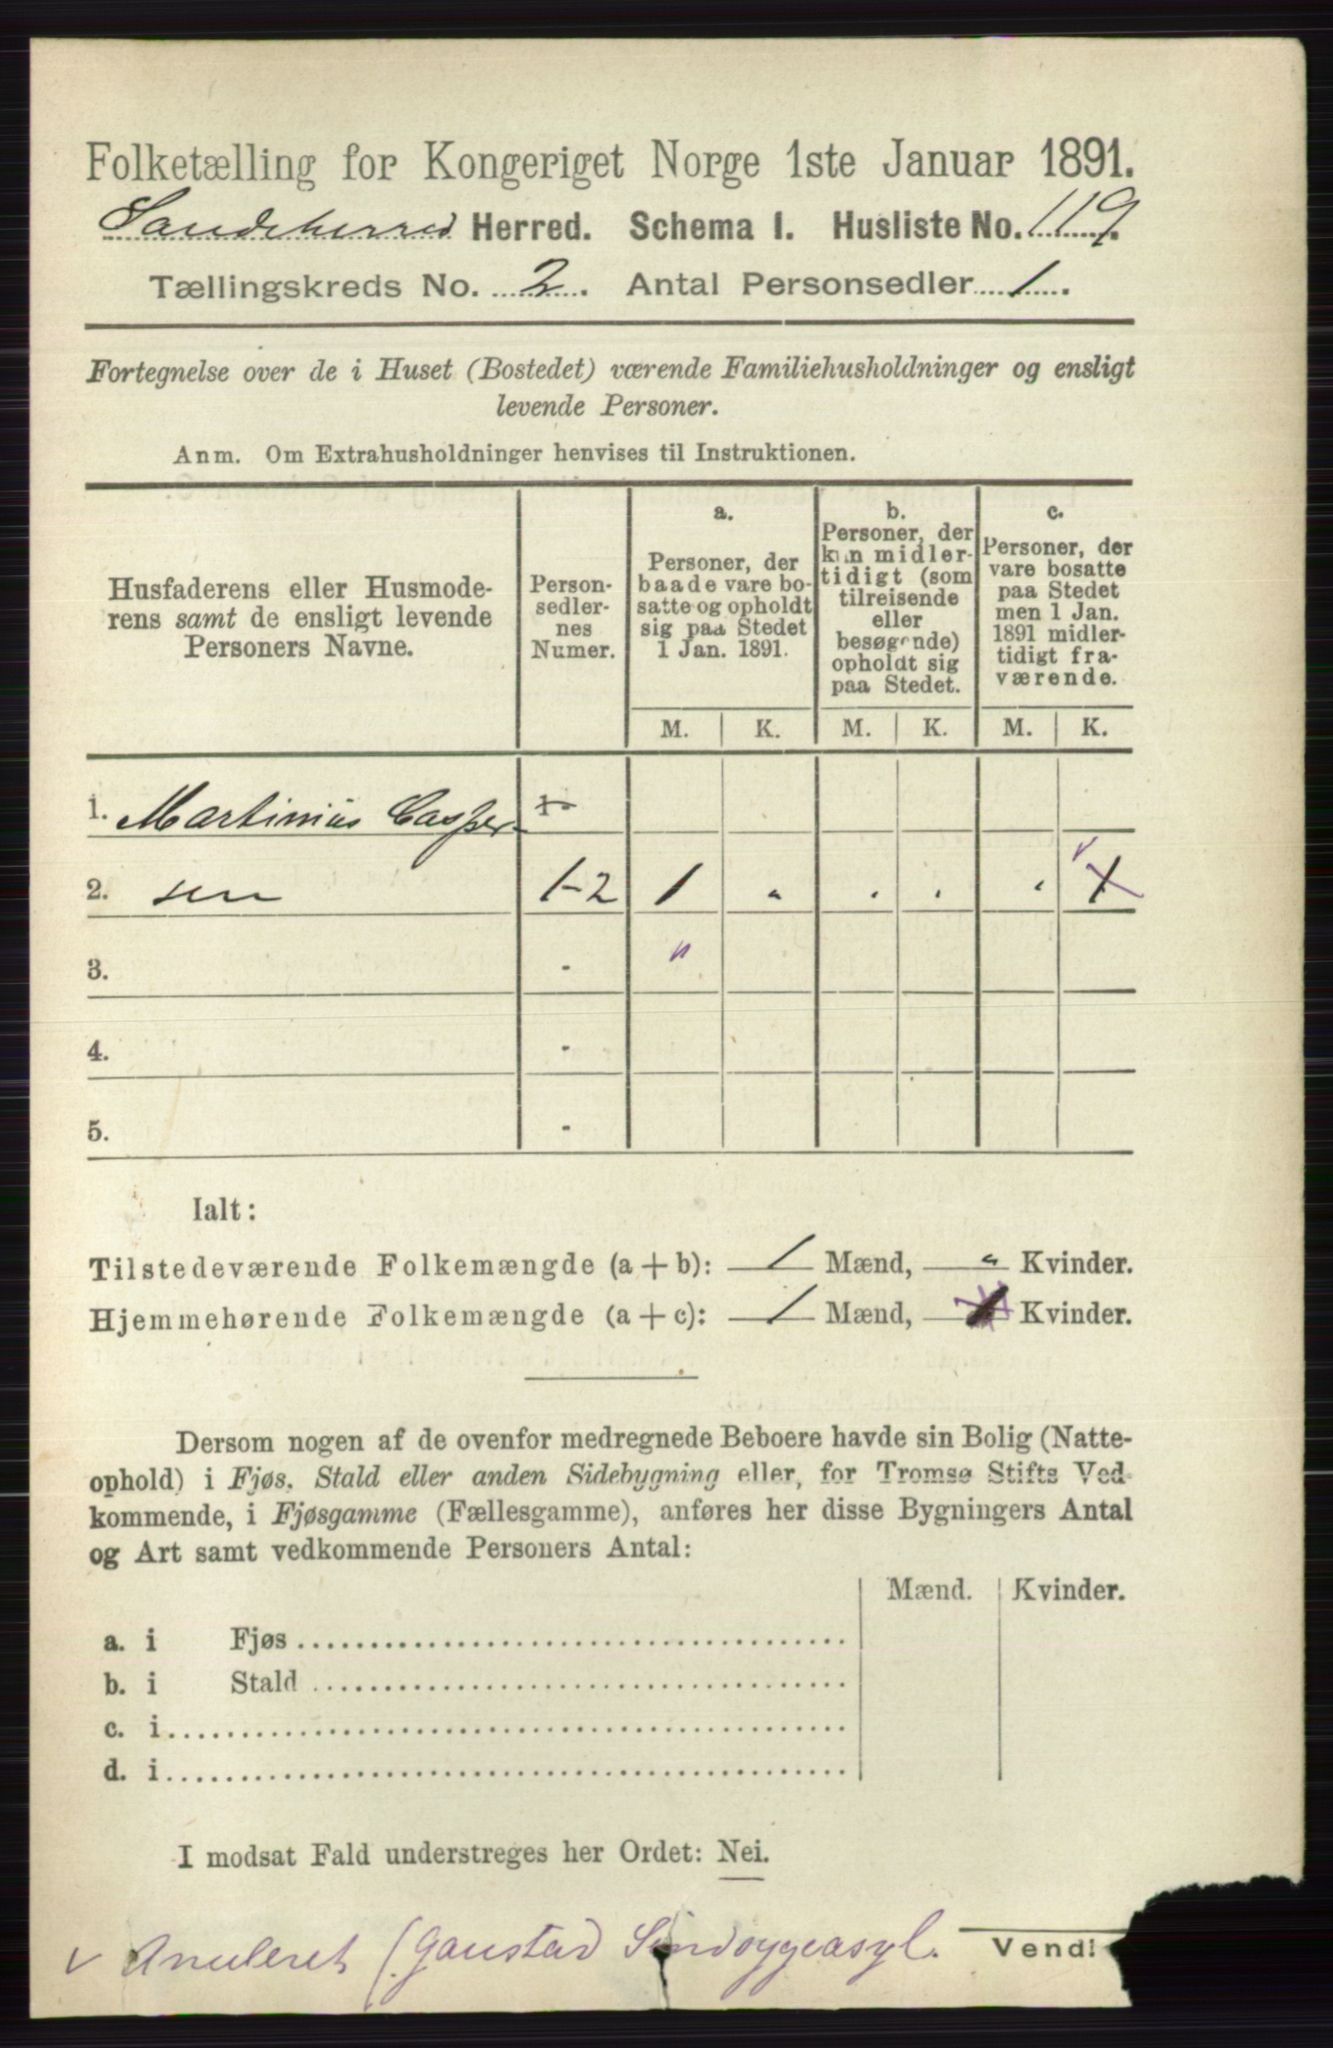 Folketælling for Kongeriget Norge 1ste Januar 1891.
Sandeherred Herred. Schema I. Husliste No. 119.
Tællingskreds No. 2. Antal Personsedler 1.
Fortegnelse over de i Huset (Bostedet) værende Familiehusholdninger og ensligt
levende Personer.
Anm. Om Extrahusholdninger henvises til Instruktionen.
Husfaderens eller Husmode-
rens samt de ensligt levende
Personers Navne.
Person-
sedler-
nes
Numer.
a.
Personer, der
baade vare bo-
satte og opholdt
sig paa Stedet
1 Jan. 1891.
b.
Personer, der
kun midler-
tidigt (som
tilreisende
eller
besøgende)
opholdt sig
paa Stedet.
c.
Personer, der
vare bosatte
paa Stedet
men 1 Jan.
1891 midler-
tidigt fra-
værende.
M. K. M. K. M. K.
1. Martinius Casper-
2. sen 1-2 1 „ . . . 1
3. -
4. -
5. -
Ialt:
Tilstedeværende Folkemængde (a + b): 1 Mænd, „ Kvinder.
Hjemmehørende Folkemængde (a + c): 1 Mænd, 1 Kvinder.
Dersom nogen af de ovenfor medregnede Beboere havde sin Bolig (Natte-
ophold) i Fjøs, Stald eller anden Sidebygning eller, for Tromsø Stifts Ved-
kommende, i Fjøsgamme (Fællesgamme), anføres her disse Bygningers Antal
og Art samt vedkommende Personers Antal:
Mænd. Kvinder.
a. i Fjøs
b. i Stald
c. i
d. i
I modsat Fald understreges her Ordet: Nei.
v Anuleret (Gaustad Sindsygeasyl.
Vend!